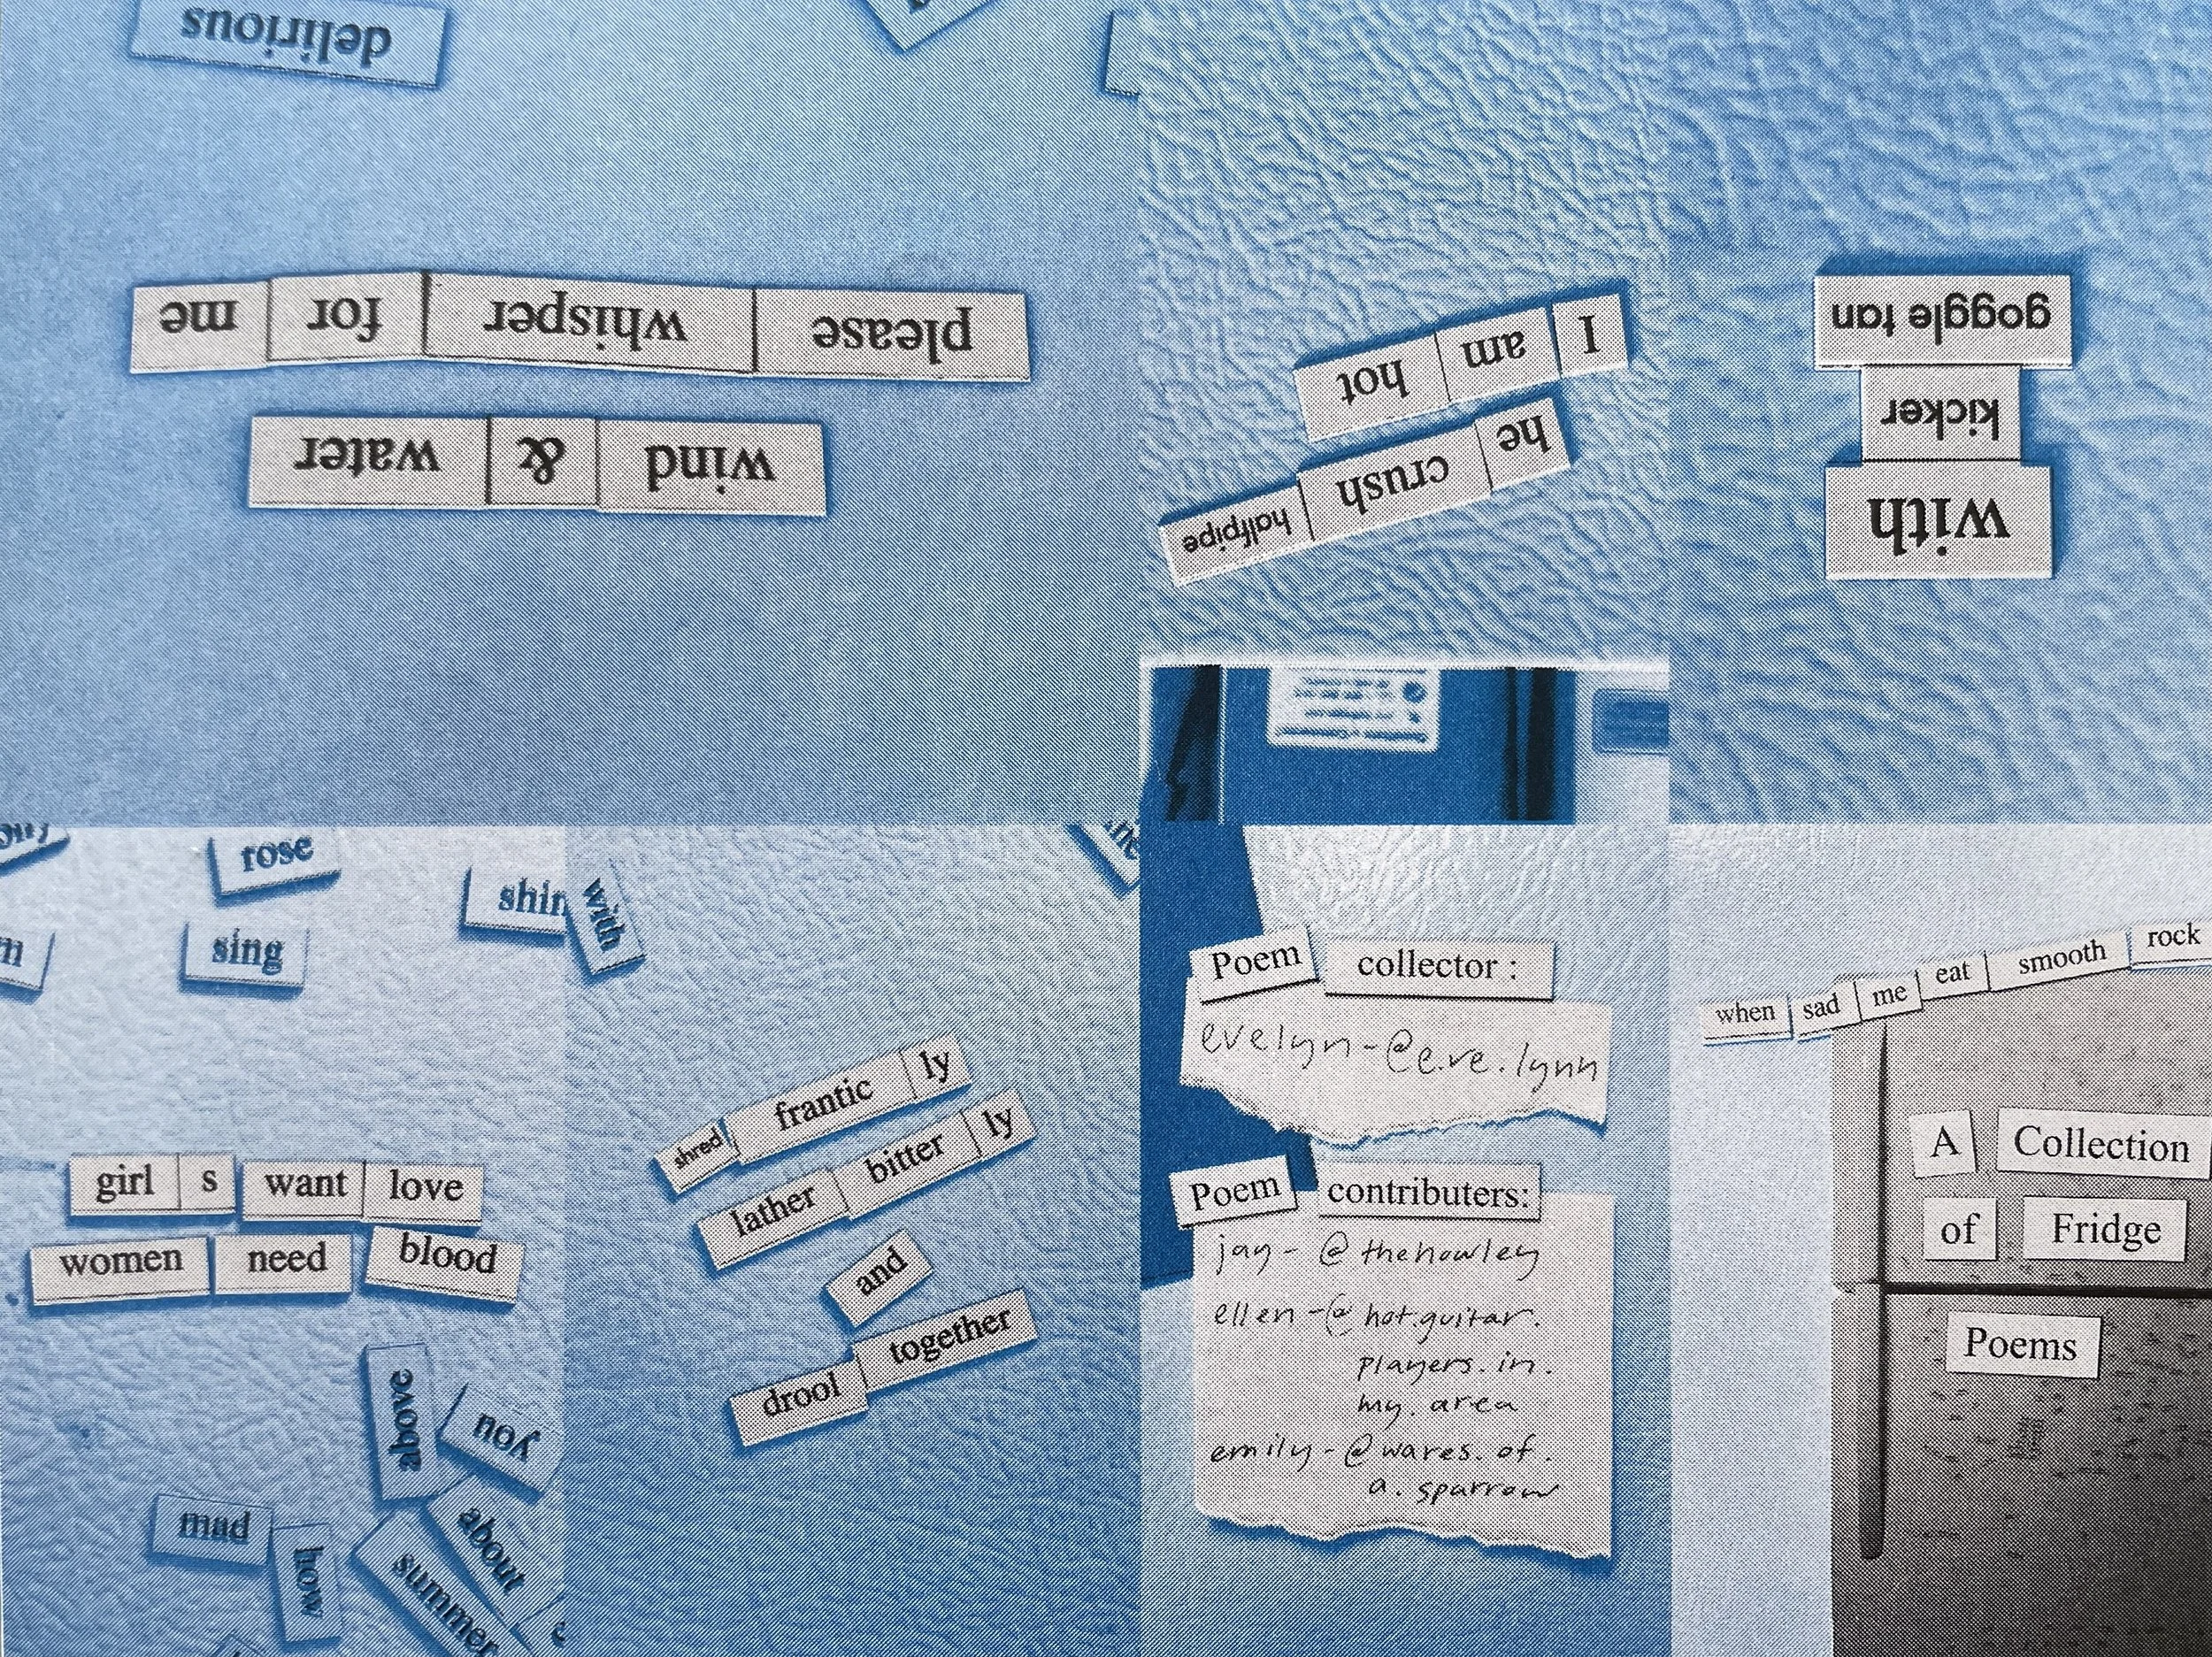 wind & water
please whisper for me
delirious
he crush halfpipe
I am hot
with
kicker
goggle tan
rose
sing
with
girl s want love
women need blood
above
you
mad
how
about
summer
shred frantic ly
lather bitter ly
and
drool together
Poem collector :
evelyn-@e.ve.lynn
Poem contributers:
jay-@thehowley
ellen-@hot.guitar.
players.in.
my.area
emily-@wares.of.
a.sparrow
when sad me eat smooth rock
A Collection
of Fridge
Poems